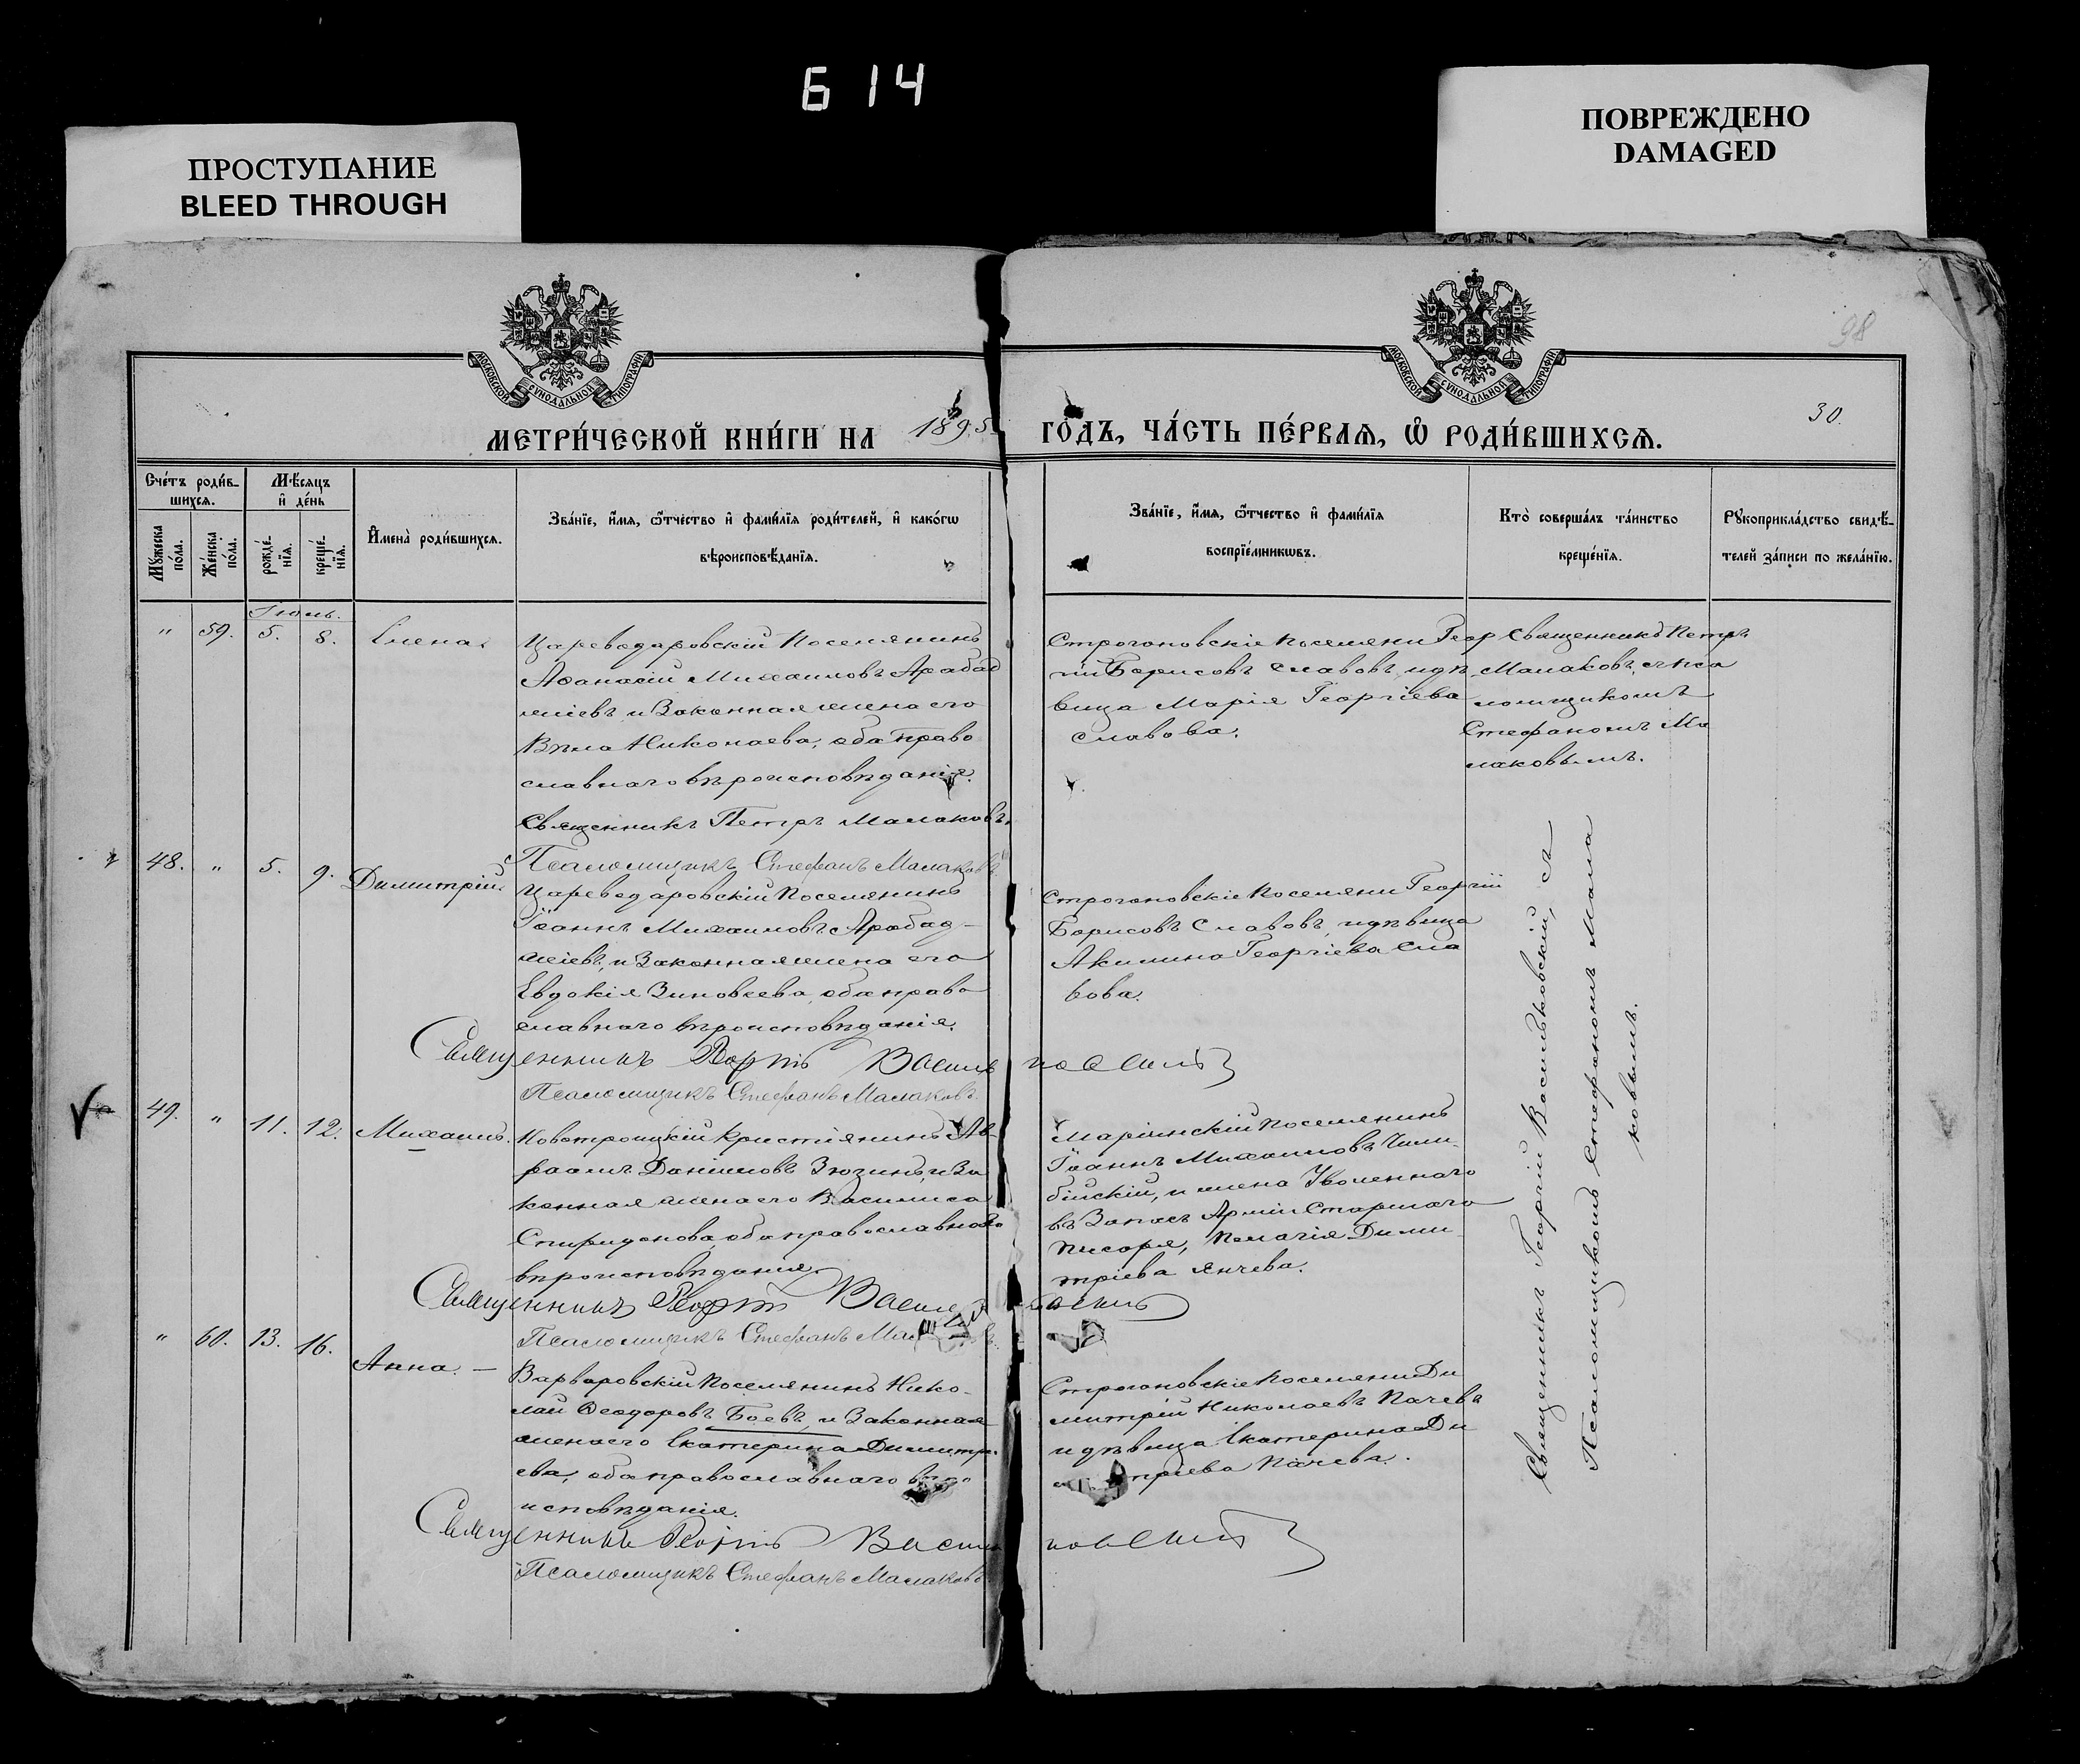 Б 14
ПРОСТУПАНИЕ
BLEED THROUGH
ПОВРЕЖДЕНО
DAMAGED
МОСКОВСКОЙ СѴНОДАЛЬНОЙ ТИПОГРАФІИ
МОСКОВСКОЙ СѴНОДАЛЬНОЙ ТИПОГРАФІИ
98
30.
МЕТРИ́ЧЕСКОЙ КНИ́ГИ НА 1895
ГО́ДЪ, ЧА́СТЬ ПЕ́РВАЯ, Ѡ҆ РОДИ́ВШИХСѦ.
Сче́тъ роди́в-
шихсѧ.
Мꙋ́жеска
по́ла.
Же́нска
по́ла.
Мѣ́сѧцъ
и҆ де́нь
рожде́-
нїѧ.
креще́-
нїѧ.
И҆мена̀ роди́вшихсѧ.
Зва́нїе, и҆́мѧ, ѻ҆́тчество и҆ фами́лїѧ роди́телей, и҆ како́гѡ
вѣроисповѣ́данїѧ.
Зва́нїе, и҆́мѧ, ѻ҆́тчество и҆ фами́лїѧ
воспрїе́мникѡвъ.
Кто̀ соверша́лъ та́инство
креще́нїѧ.
Рꙋкоприкла́дство свидѣ́-
телей за́писи по жела́нїю.
" 59. 5. 8. Елена
Цареводаровскій Поселянинъ
Аѳанасій Михаиловъ Арабад
жіевъ, и Законная жена его
Вѣра Николаева, оба право
славнаго вѣроисповѣданія.
Священникъ Петръ Малаковъ.
Псаломщикъ Стефанъ Малаковъ
Строгоновскіе поселяни Геор
гій Борисовъ Славовъ, и дѣ
вица Марія Георгіева
Славова.
Священникъ Петръ
Малаковъ, съ пса
ломщикомъ
Стефаномъ Ма
лаковымъ.
48. " 5. 9. Димитрій
Цареводаровскій Поселянинъ
Іоаннъ Михаиловъ Арабад-
жіевъ, и Законная жена его
Евдокія Зиновеева, оба право
славнаго вѣроисповѣданія.
Священникъ Георгій Василь ковскій
Псаломщикъ Стефанъ Малаковъ
Строгоновскіе поселяни Георгій
Борисовъ Славовъ, и дѣвица
Акилина Георгіева Сла
вова.
49. " 11. 12. Михаилъ.
Новотроицкій Кристіянинъ Ав-
раамъ Даніиловъ Зюзинъ, и За
конная жена его Василиса
Спиридонова, оба православнаго
вѣроисповѣдания.
Священникъ Георгій Василь ковскій
Псаломщикъ Стефанъ
Маріинскій поселянинъ
Іоаннъ Михаиловъ
бійскій, и жена Уволеннаго
въ Запасъ Арміи Старшаго
писаря, Пелагія Дими-
тріева Янчева.
" 60. 13. 16. Анна. —
Варваровскій поселянинъ Нико-
лай Ѳеодоровъ Боевъ, и Законная
жена его Екатерина Димитрі
ева, оба православнаго вѣро
исповѣданія.
Священникъ Георгій Василь ковскій
Псаломщикъ Стефанъ Малаковъ
Строгоновскіе поселяни Ди
митрій Николаевъ Пачевъ
и дѣвица Екатерина Ди
митріева Пачева.
Священникъ Георгій Васильковскій, съ
Псаломщикомъ Стефаномъ Мала
ковымъ.